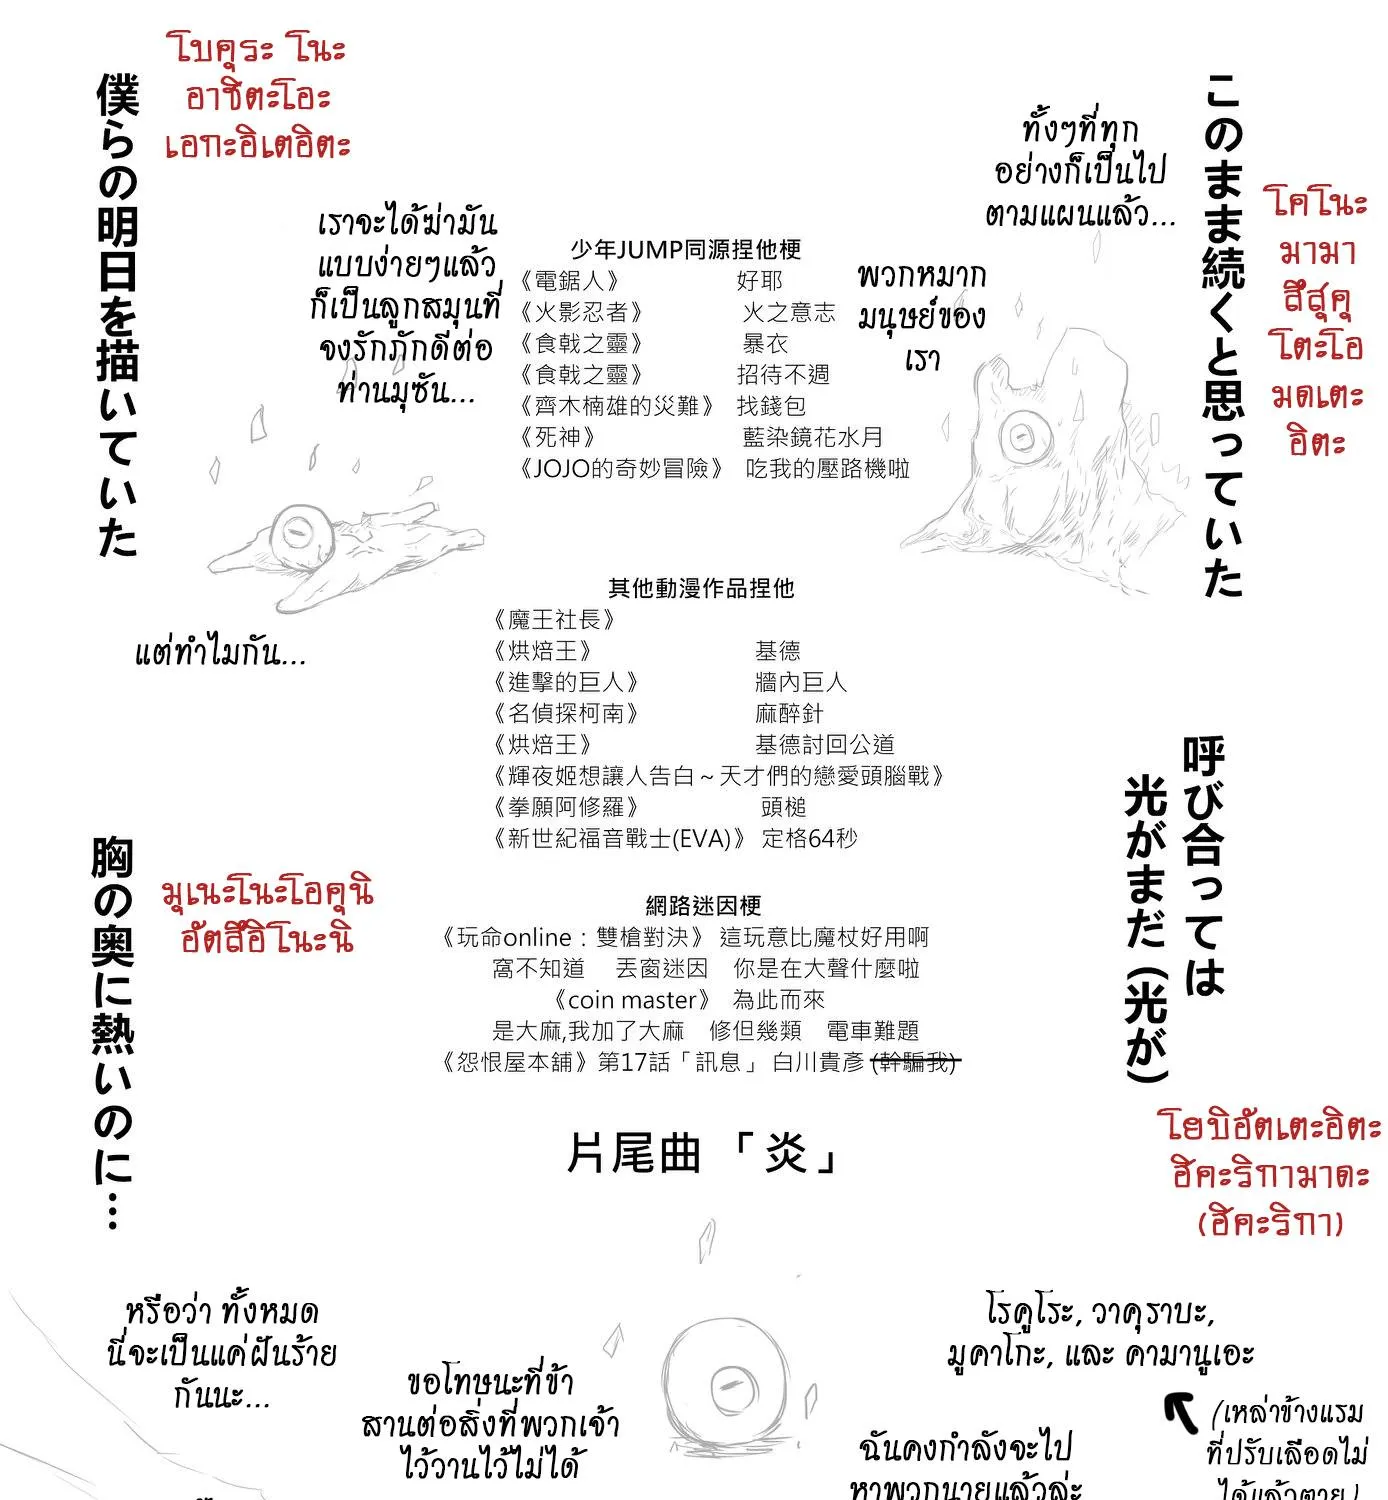 このまま続くと思っていた
โคโนะ
มามา
สึสุคุ
โตะโอ
มดเตะ
อิตะ
ทั้งๆที่ทุก
อย่างก็เป็นไป
ตามแผนแล้ว...
พวกหมาก
มนุษย์ของ
เรา
少年JUMP同源捏他梗
《電鋸人》 好耶
《火影忍者》 火之意志
《食戟之靈》 暴衣
《食戟之靈》 招待不週
《齊木楠雄的災難》 找錢包
《死神》 藍染鏡花水月
《JOJO的奇妙冒險》 吃我的壓路機啦
เราจะได้ฆ่ามัน
แบบง่ายๆแล้ว
ก็เป็นลูกสมุนที่
จงรักภักดีต่อ
ท่านมุซัน...
僕らの明日を描いていた
โบคุระ โนะ
อาชิตะโอะ
เอกะอิเตอิตะ
แต่ทำไมกัน...
其他動漫作品捏他
《魔王社長》
《烘焙王》 基德
《進擊的巨人》 牆內巨人
《名偵探柯南》 麻醉針
《烘焙王》 基德討回公道
《輝夜姬想讓人告白～天才們的戀愛頭腦戰》
《拳願阿修羅》 頭槌
《新世紀福音戰士(EVA)》 定格64秒
呼び合っては
光がまだ (光が)
โยบิอัตเตะอิตะ
ฮิคะริกามาดะ
(ฮิคะริกา)
網路迷因梗
《玩命online：雙槍對決》 這玩意比魔杖好用啊
窩不知道 丟窗迷因 你是在大聲什麼啦
《coin master》 為此而來
是大麻,我加了大麻 修但幾類 電車難題
《怨恨屋本舖》第17話「訊息」 白川貴彥 (幹騙我)
胸の奥に熱いのに…
มุเนะโนะโอคุนิ
อัตสึอิโนะนิ
片尾曲 「炎」
โรคุโระ, วาคุราบะ,
มูคาโกะ, และ คามานูเอะ
(เหล่าข้างแรม
ที่ปรับเลือดไม่
ได้แล้วตาย)
ฉันคงกำลังจะไป
หาพวกนายแล้วล่ะ
ขอโทษนะที่ข้า
สานต่อสิ่งที่พวกเจ้า
ไว้วานไว้ไม่ได้
หรือว่า ทั้งหมด
นี่จะเป็นแค่ฝันร้าย
กันนะ...